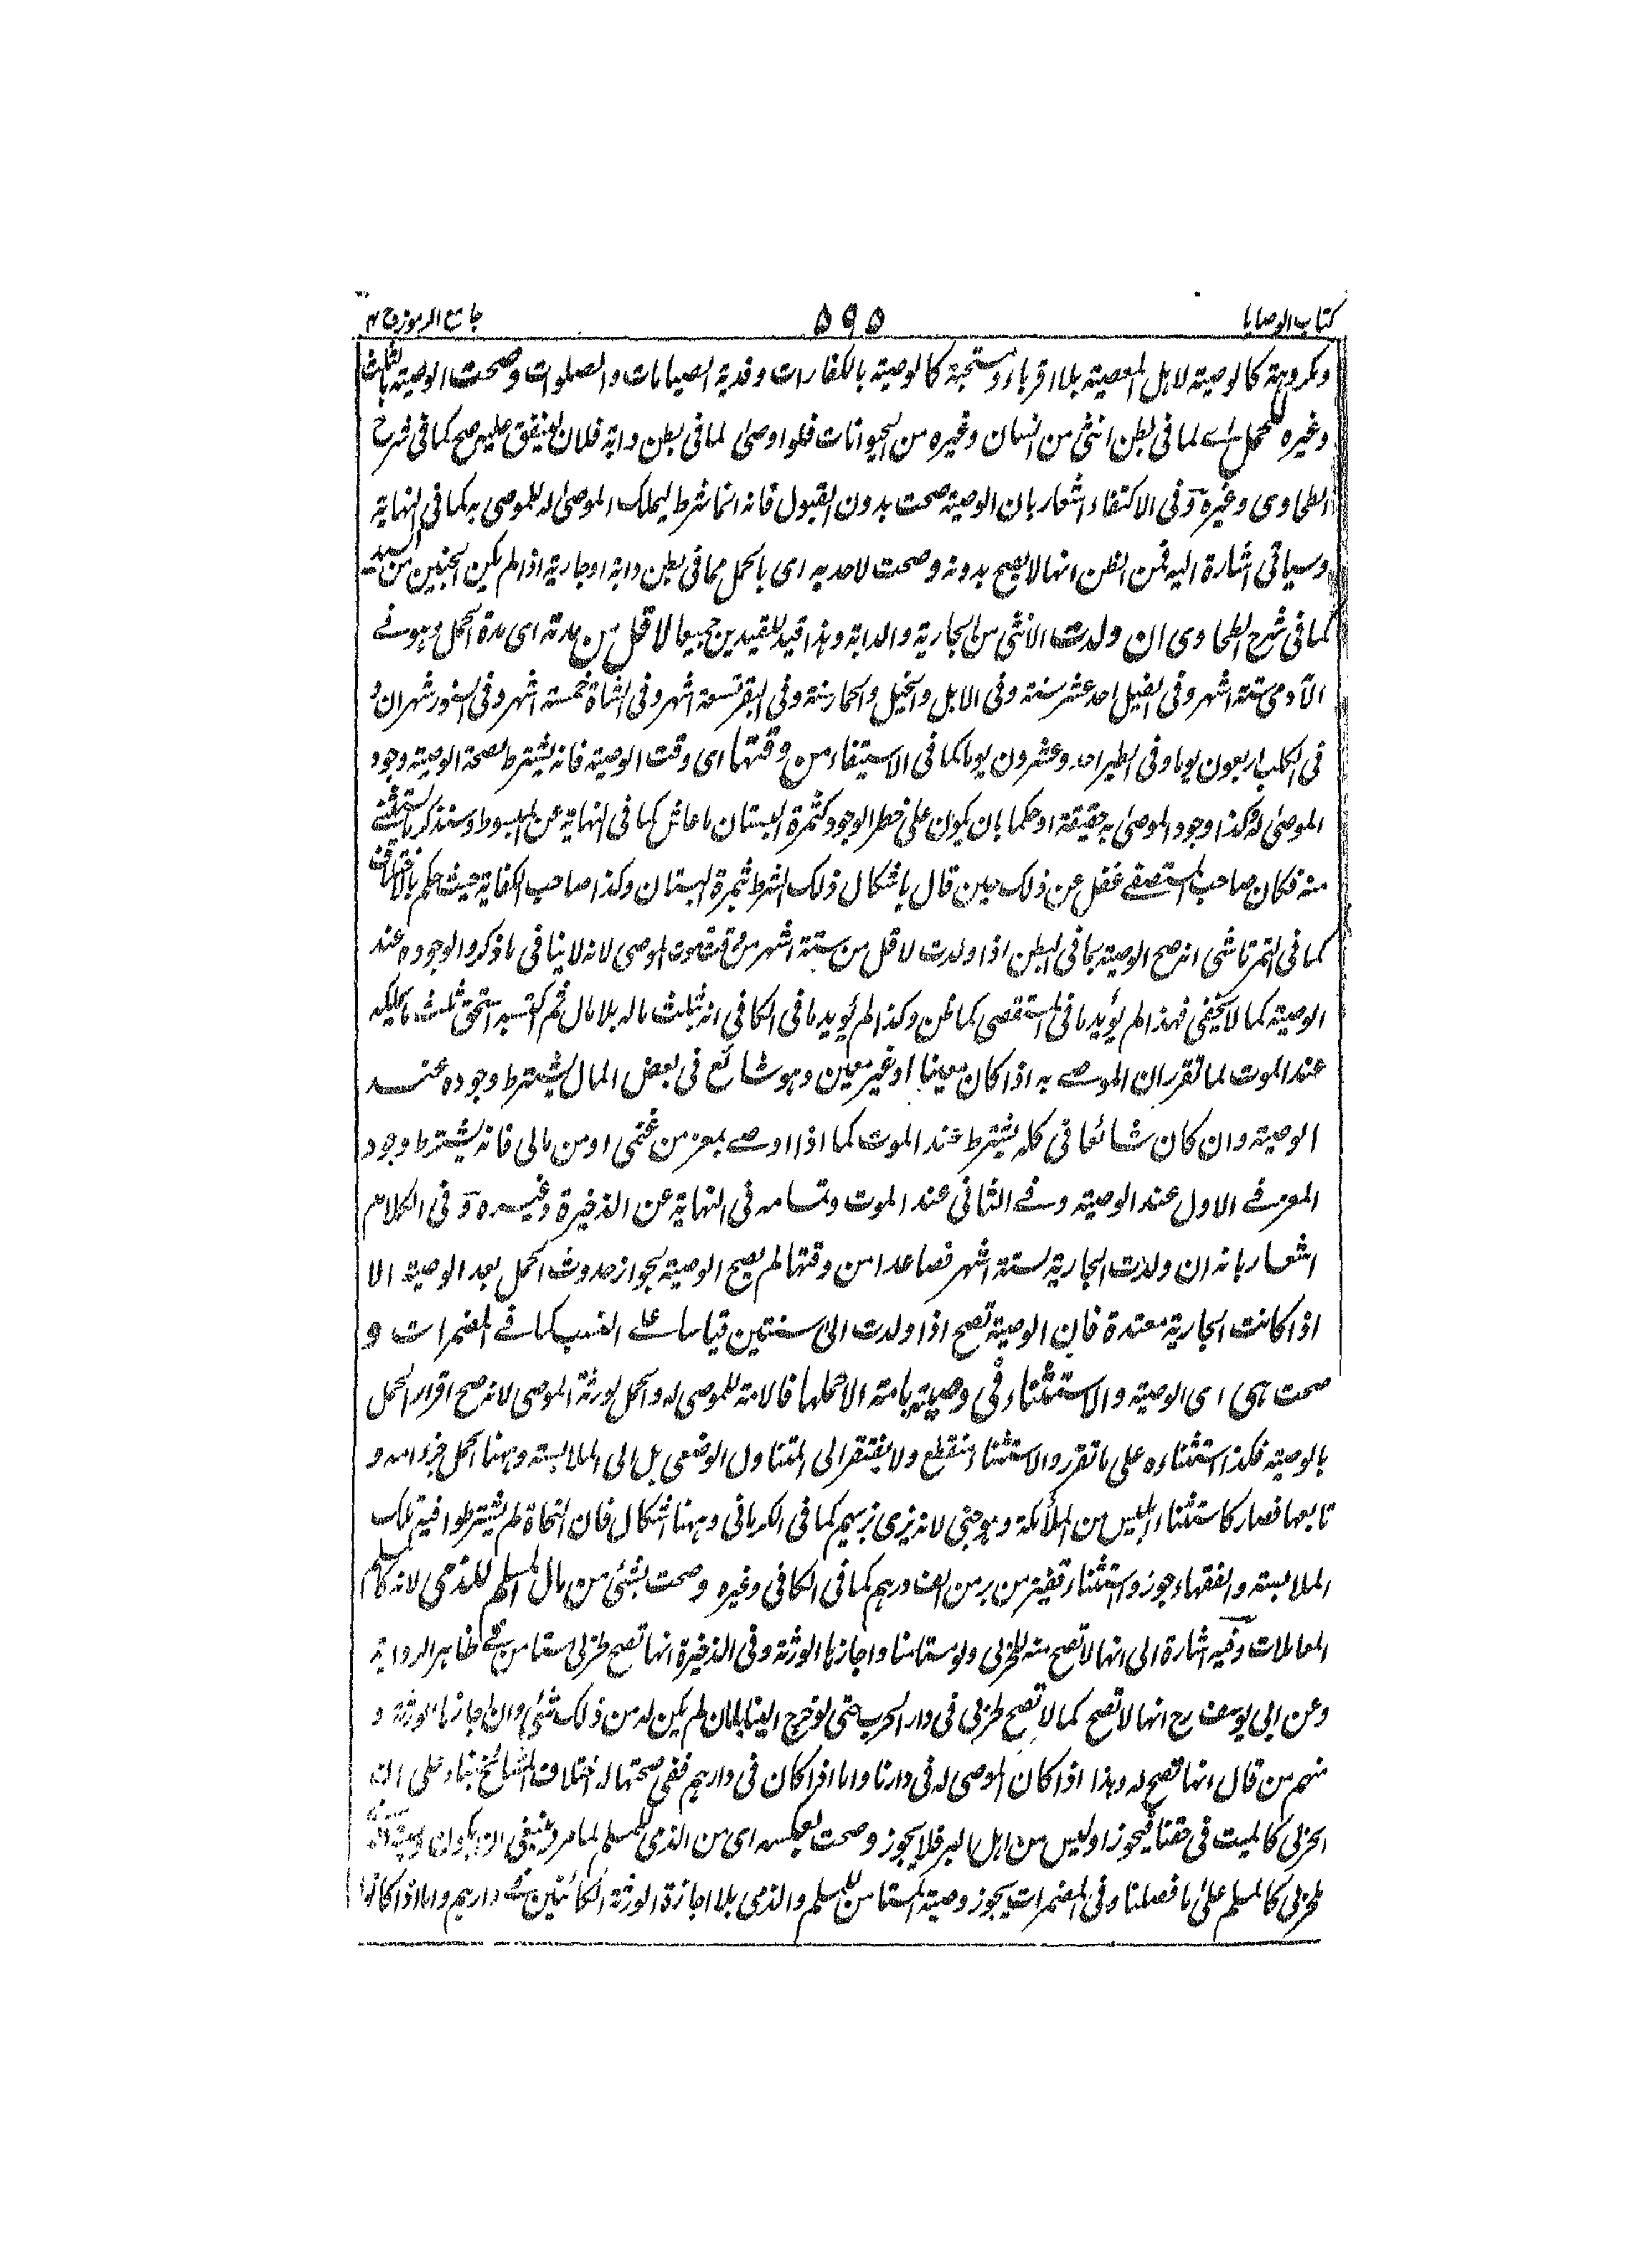 كتاب الوصايا ٥٩٥ جامع الرموز ج ٢
ومكروهة كالوصية لاهل المعصية بلا اقرباء ومستحبة كالوصية بالكفارات وفدية الصيامات والصلوات وصحت الوصية بالثلث
وغيره للحمل اے لما فى بطن انثى من انسان وغيره من الحيوانات فلو اوصى لما فى بطن دابة فلان لينفق عليه صح كما فى شرح
الطحاوى وغيره وفى الاكتفاء اشعار بان الوصية صحت بدون القبول فانه انما شرط ليملك الموصى له للموصى به كما فى النهاية
وسياتى اشارة اليه فمن الظن انها لا يصح بدونه وصحت لاحد به اى بالحمل مما فى بطن دابة او جارية اذا لم يكن الجنين من السيد
كما فى شرح الطحاوى ان ولدت الانثى من الجارية والدابة وهذا قيد للقيدين جميعا لاقل من مدته اى مدة الحمل وهو فے
الآدمى ستة اشهر وفى الفيل احد عشر سنة وفى الابل والخيل والحمار سنة وفى البقر تسعة اشهر وفى الشاة خمسة اشهر وفى السنور شهران و
فى الكلب اربعون يوما وفى الطير احد وعشرون يوما كما فى الاستيفاء من وقتها اى وقت الوصية فانه يشترط لصحة الوصية وجود
الموصى له وكذا وجود الموصى به حقيقة او حكما بان يكون على خطر الوجود كثمرة البستان ما عاش كما فى النهاية عن المبسوط وسنذكر ما يستثنے
منه فكان صاحب المستصفے غفل عن ذلك حين قال باشكال ذلك الشرط بثمرة البستان وكذا صاحب الكفاية حيث حكم بالاختلاف
كما فى التمرتاشى انه صح الوصية بما فى البطن اذا ولدت لاقل من ستة اشهر من وقت موت الموصى لانه لا ينافى ما ذكروا لوجوده عند
الوصية كما لا يخفى فهذا لم يؤيد ما فى المستقصى كما ظن وكذا لم يؤيد ما فى الكافى انه بثلث ماله بلا مال ثم اكتسبه استحق ثلث ما يملكه
عند الموت لما تقرر ان الموصے به اذا كان معينا او غير معين وهو شائع فى بعض المال يشترط وجوده عند
الوصية وان كان شائعا فى كله يشترط عند الموت كما اذا اوصے بمعز من غنمى او من مالى فانه يشترط وجود
المعز فے الاول عند الوصية وفے الثانى عند الموت وتمامه فى النهاية عن الذخيرة وغيره وفى الكلام
اشعار بانه ان ولدت الجارية لستة اشهر فصاعدا من وقتها لم يصح الوصية بجواز حدوث الحمل بعد الوصية الا
اذا كانت الجارية معتدة فان الوصية تصح اذا ولدت الى سنتين قياسا علے النسب كما فے المضمرات و
صحت هى اى الوصية والاستثناء فى وصيته بامته الا حملها فالامة للموصى له والحمل لورثة الموصى لانه صح اقرار الحمل
بالوصية فكذا استثناءه على ما تقرر والاستثناء منقطع ولا يفتقر الى المتناول الوضعى بل الى الملابسة وههنا الحمل جزء امه و
تابعها فصار كاستثناء ابليس من الملائكة وهو جنى لانه يزى بزيهم كما فى الكرمانى وههنا اشكال فان النحاة لم يشترطوا فيه تلك
الملابسة والفقهاء جوزوا استثناء قفيز من بر من الف درهم كما فى الكافى وغيره وصحت بشئ من مال المسلم للذمى لانه كالمسلم فى
المعاملات وفيه اشارة الى انها لا تصح منه للحربى ولو مستامنا واجازها الورثة وفى الذخيرة انها تصح لحربى مستامن فے ظاهر الرواية
وعن ابى يوسف رح انها لا تصح كما لا تصح لحربى فى دار الحرب حتى لو خرج الينا بامان لم يكن له من ذلك شئ وان اجازها الورثة و
منهم من قال انها تصح له وهذا اذا كان الموصى له فى دارنا واما اذا كان فى دارهم ففى صحتها له اختلاف المشائخ بناء على ان
الحربى كالميت فى حقنا فيجوز او ليس من اهل البر فلا يجوز وصحت بعكسه اى من الذمى للمسلم لما مر وينبغى ان يكون
لحربى كالمسلم على ما فصلنا وفى المضمرات يجوز وصية المستامن للمسلم والذمى بلا اجازة الورثة الكائنين فے دارهم واما اذا كانوا